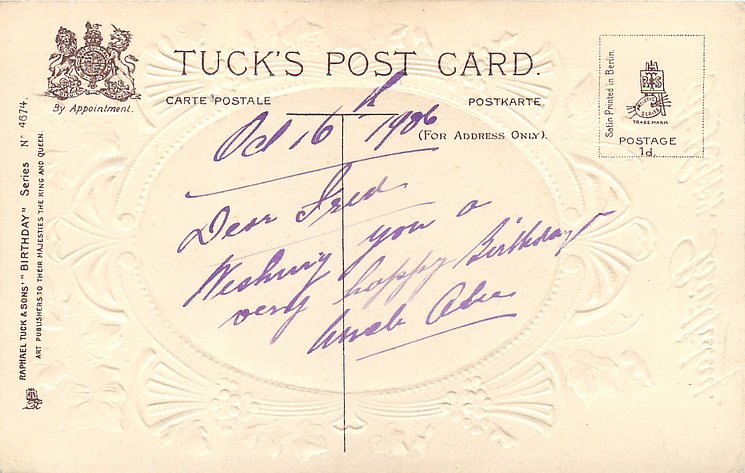 By Appointment.
TUCK'S POST CARD.
CARTE POSTALE
POSTKARTE
(FOR ADDRESS ONLY).
Satin Printed in Berlin.
TRADE MARK
POSTAGE
1d.
RAPHAEL TUCK & SONS' "BIRTHDAY" Series No 4674.
ART PUBLISHERS TO THEIR MAJESTIES THE KING AND QUEEN.
Oct 16th 1906
Dear Fred
Wishing you a
very happy Birthday
Uncle Abe